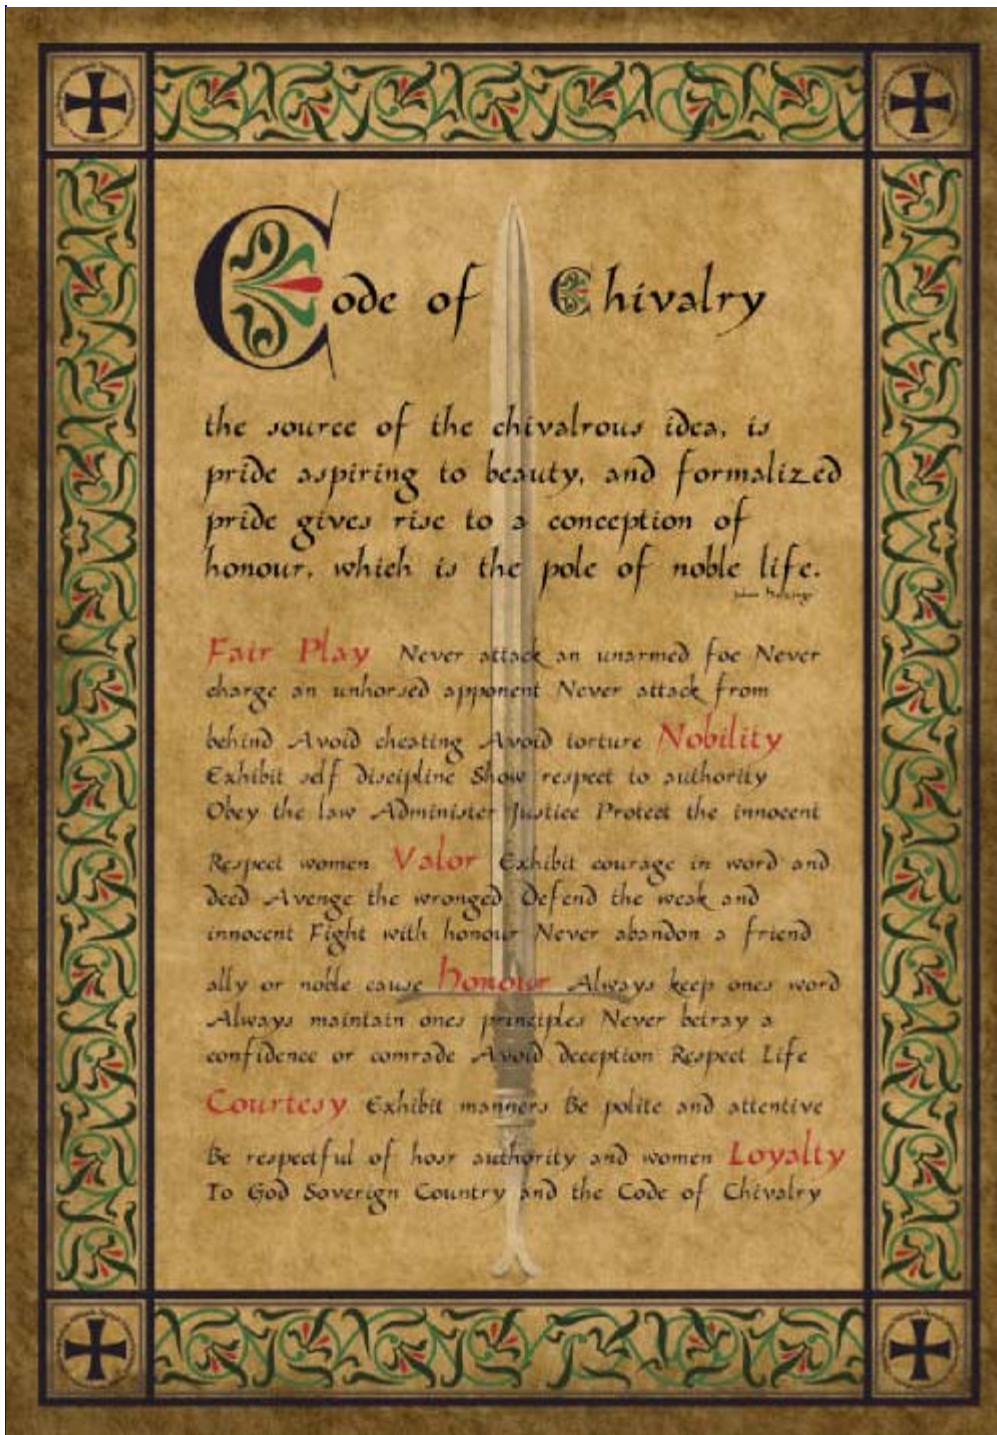 Code of Chivalry
the source of the chivalrous idea, is
pride aspiring to beauty, and formalized
pride gives rise to a conception of
honour, which is the pole of noble life.
Fair Play Never attack an unarmed foe Never
charge an unhorsed apponent Never attack from
behind Avoid cheating Avoid torture Nobility
Exhibit self discipline Show respect to authority
Obey the law Administer Justice Protect the innocent
Respect women Valor Exhibit courage in word and
deed Avenge the wronged Defend the weak and
innocent Fight with honour Never abandon a friend
ally or noble cause honour Always keep ones word
Always maintain ones principles Never betray a
confidence or comrade Avoid deception Respect Life
Courtesy Exhibit manners Be polite and attentive
Be respectful of hosr authority and women Loyalty
To God Soverign Country and the Code of Chivalry